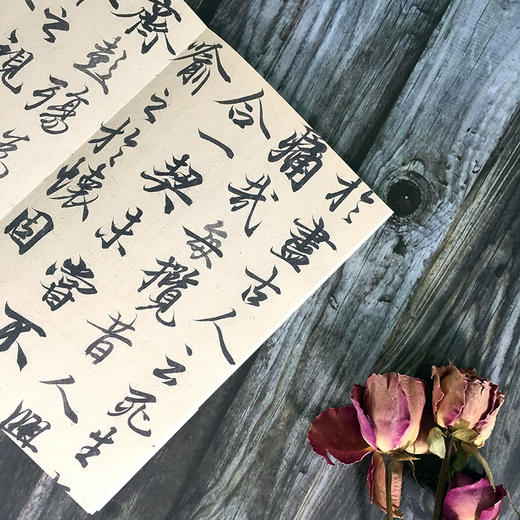 於盡古人云死生
痛哉每攬昔人興
合一契未嘗不
喻之於懷固
齊彭殤為
之視